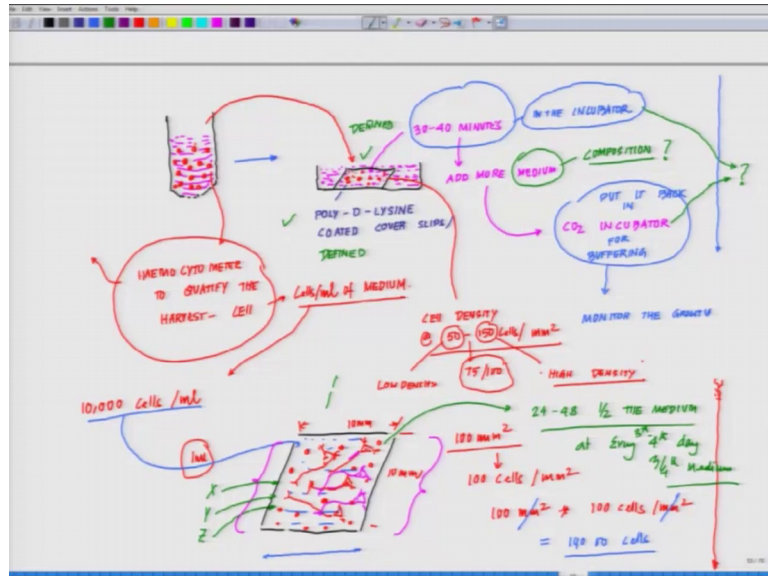 File Edit View Insert Actions Tools Help
DEFINED
30-40 MINUTES
IN THE INCUBATOR
ADD MORE MEDIUM
COMPOSITION ?
?
PUT IT BACK
IN
CO2 INCUBATOR
FOR
BUFFERING
MONITOR THE GROWTH
POLY-D-LYSINE
COATED COVER SLIPS/
DEFINED
HAEMOCYTOMETER
TO QUATIFY THE
HARVEST- CELL
Cells/ml of MEDIUM.
CELL DENSITY
@ 50 - 150 Cells/mm2
LOW DENSITY
75/100
HIGH DENSITY
10,000 Cells/ml
1ml
10mm
10mm
X
Y
Z
100 mm2
100 cells/mm2
100 mm2 * 100 cells/mm2
= 100 00 cells
24-48 1/2 THE MEDIUM
at Every 3rd 4th day
3/4th medium